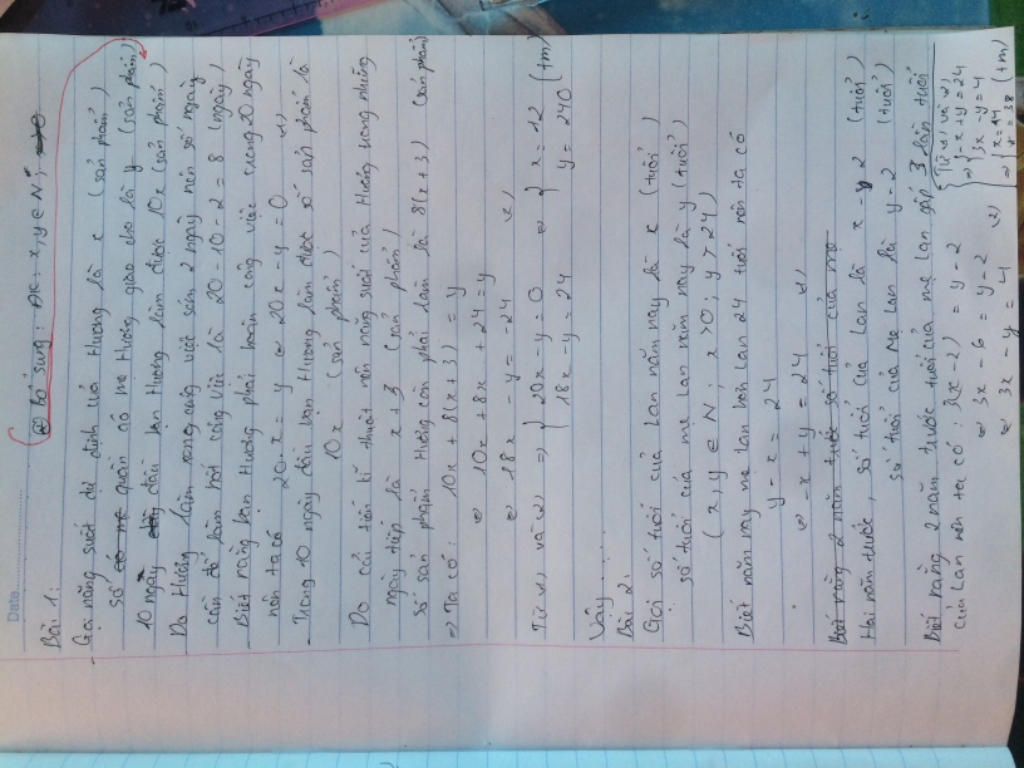 Date
⊕ Bổ sung : ĐK : x, y ∈ N*
Bài 1 :
Gọi năng suất dự định của Hương là x (sản phẩm)
số quần áo mẹ Hương giao cho là y (sản phẩm)
10 ngày đầu bạn Hương làm được 10x (sản phẩm)
Do Hương làm xong công việc sớm 2 ngày nên số ngày
cần để làm nốt công việc là 20 - 10 - 2 = 8 (ngày)
Biết rằng bạn Hương phải hoàn công việc trong 20 ngày
nên ta có 20.x = y ⇔ 20x - y = 0 (1)
Trong 10 ngày đầu bạn Hương làm được số sản phẩm là
10x (sản phẩm)
Do cải tiến kĩ thuật nên năng suất của Hương trong những
ngày tiếp là x + 3 (sản phẩm)
số sản phẩm Hương còn phải làm là 8(x + 3) (sản phẩm)
=> Ta có : 10x + 8(x + 3) = y
⇔ 10x + 8x + 24 = y
⇔ 18x - y = -24 (2)
Từ (1) và (2) => { 20x - y = 0 ⇔ { x = 12 (tm)
18x - y = 24 y = 240
Vậy ....
Bài 2.
Gọi số tuổi của Lan năm nay là x (tuổi)
số tuổi của mẹ Lan năm nay là y (tuổi)
(x, y ∈ N ; x > 0 ; y > 24)
Biết năm nay mẹ Lan hơn Lan 24 tuổi nên ta có
y - x = 24
⇔ -x + y = 24 (1)
Biết rằng 2 năm trước số tuổi của mẹ
Hai năm trước, số tuổi của Lan là x - 2 (tuổi)
số tuổi của mẹ Lan là y - 2 (tuổi)
Biết rằng 2 năm trước tuổi của mẹ Lan gấp 3 lần tuổi
của Lan nên ta có : 3(x - 2) = y - 2
⇔ 3x - 6 = y - 2
⇔ 3x - y = 4 (2)
Từ (1) và (2)
=> { -x + y = 24
3x - y = 4
=> { x = 14 (tm)
y = 38